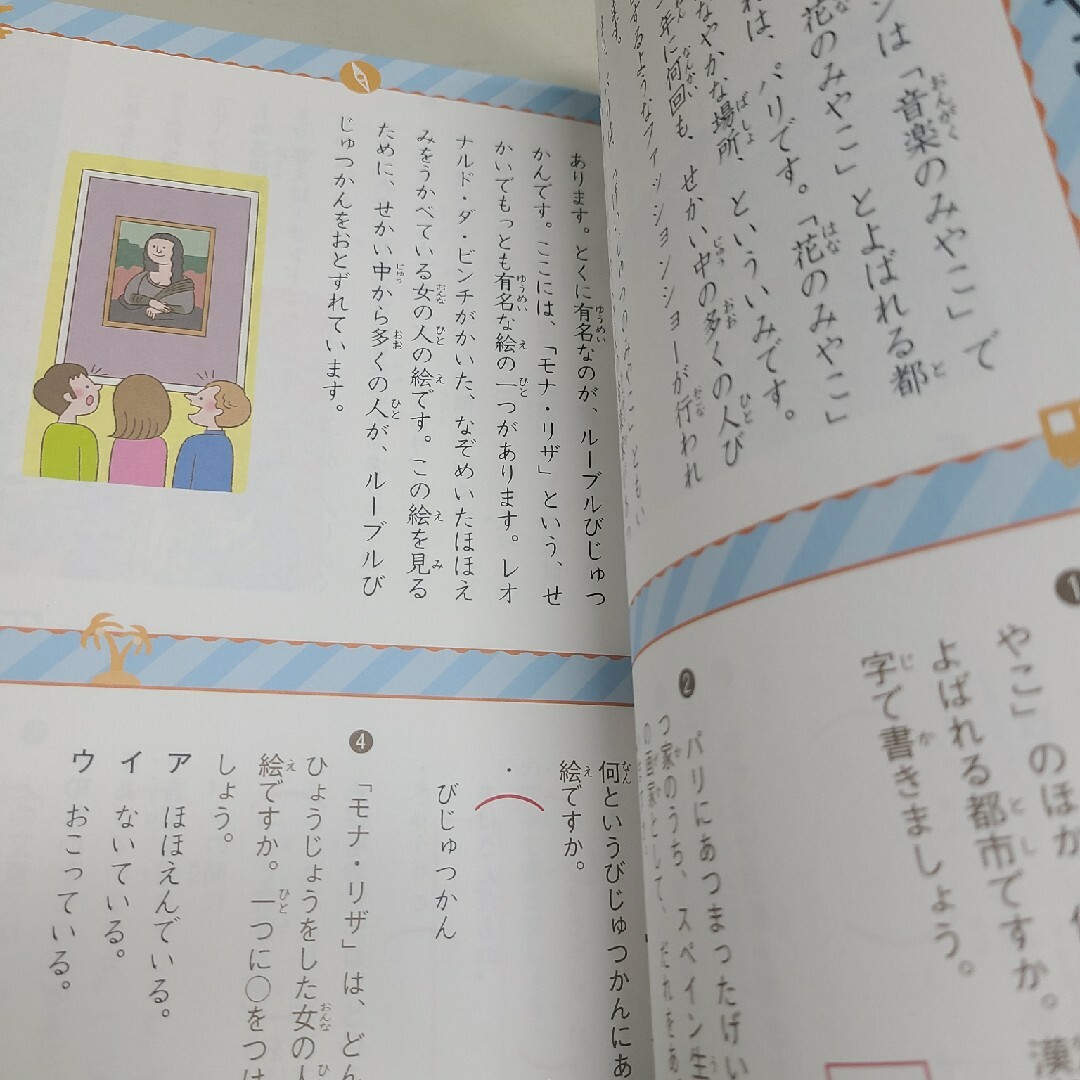 ンは「音楽のみやこ」で
花のみやこ」とよばれる都
れは、パリです。「花のみやこ」
なやかな場所、といういみです。
年に何回も、せかい中の多くの人び
するようなファッションショーが行われ
ます。
あります。とくに有名なのが、ルーブルびじゅつ
かんです。ここには、「モナ・リザ」という、せ
かいでもっとも有名な絵の一つがあります。レオ
ナルド・ダ・ビンチがかいた、なぞめいたほほえ
みをうかべている女の人の絵です。この絵を見る
ために、せかい中から多くの人が、ルーブルび
じゅつかんをおとずれています。
1
やこ」のほか、
よばれる都市ですか。漢
字で書きましょう。
2
パリにあつまったげい
つ家のうち、スペイン生
の画家として、だれをあ
何というびじゅつかんにあ
絵ですか。
びじゅつかん
4
「モナ・リザ」は、どん
ひょうじょうをした女の人
絵ですか。一つに○をつけ
しょう。
ア ほほえんでいる。
イ ないている。
ウ おこっている。